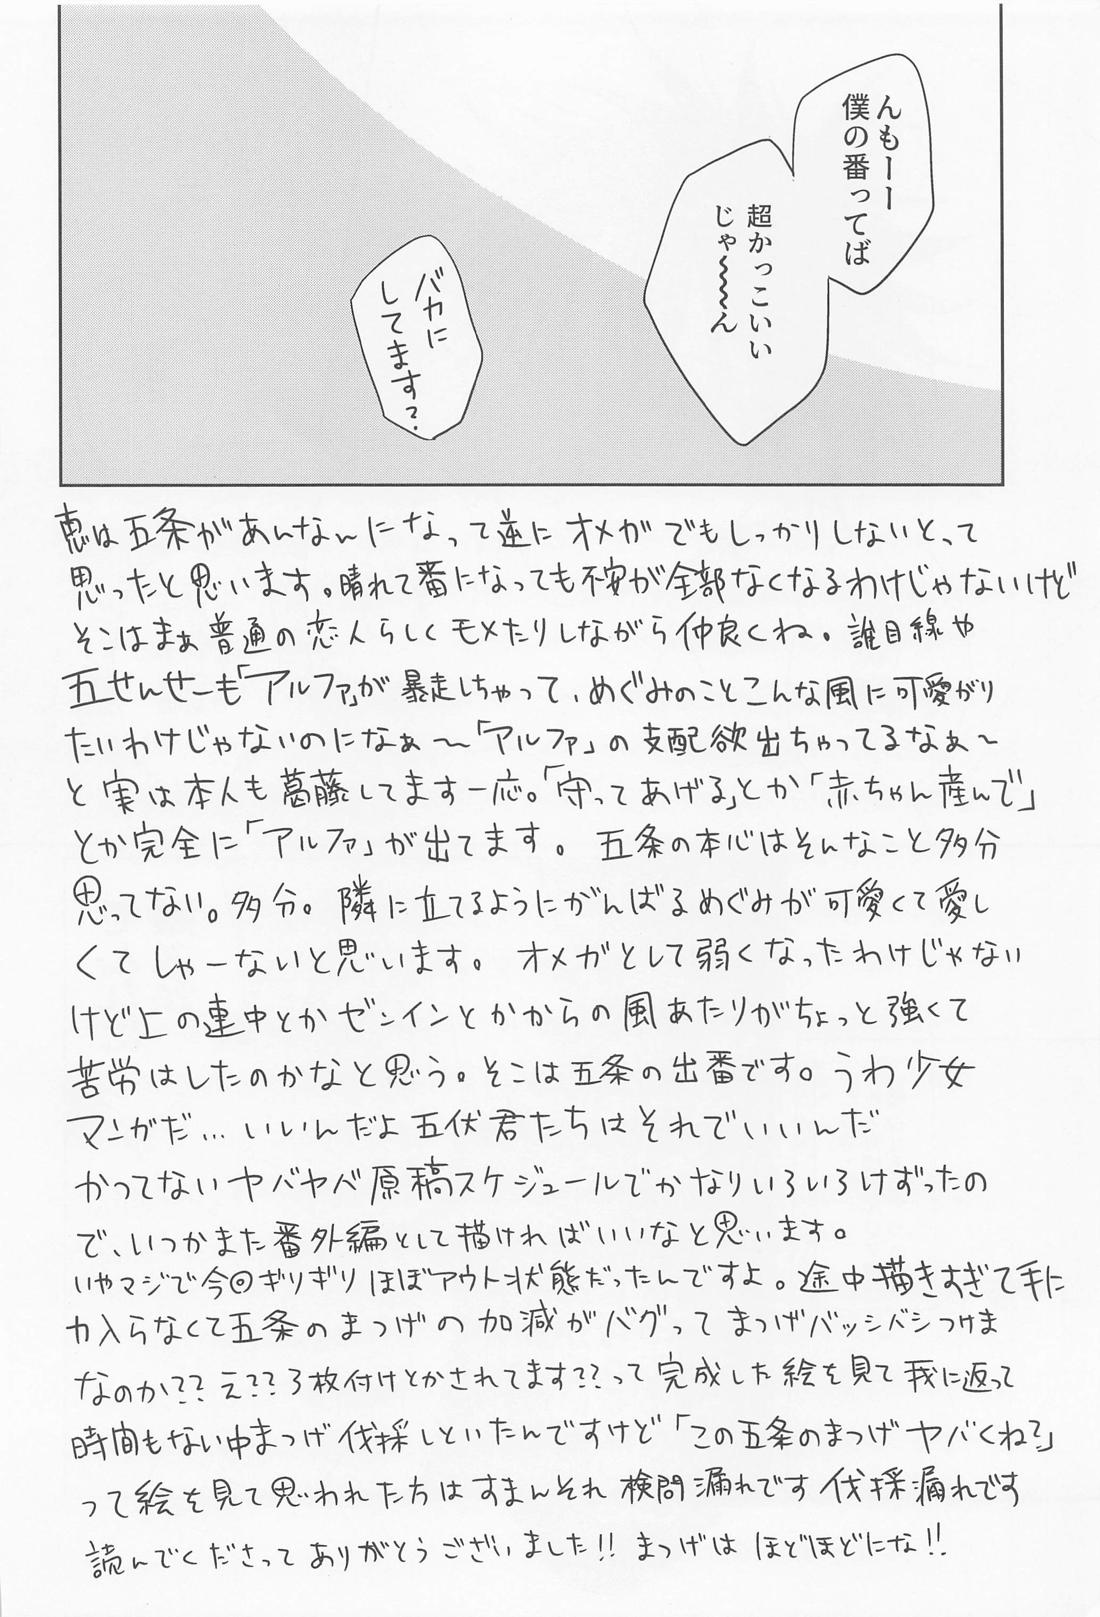 んもーー
僕の番ってば
超かっこいい
じゃ〜〜〜ん
バカに
してます?
恵は五条があんなんになって逆にオメガでもしっかりしないとって
思ったと思います。晴れて番になっても不安が全部なくなるわけじゃないけど
そこはまぁ普通の恋人らしくモメたりしながら仲良くね。誰目線や
五せんせーも「アルファ」が暴走しちゃって、めぐみのことこんな風に可愛がり
たいわけじゃないのになぁ〜「アルファ」の支配欲出ちゃってるなぁ〜
と実は本人も葛藤してます一応。「守ってあげる」とか「赤ちゃん産んで」
とか完全に「アルファ」が出てます。五条の本心はそんなこと多分
思ってない。多分。隣に立てるようにがんばるめぐみが可愛くて愛し
くてしゃーないと思います。オメガとして弱くなったわけじゃない
けど上の連中とかゼンインとかからの風あたりがちょっと強くて
苦労はしたのかなと思う。そこは五条の出番です。うわ少女
マンガだ…いいんだよ五伏君たちはそれでいいんだ
かつてないヤバヤバ原稿スケジュールでかなりいろいろけずったの
で、いつかまた番外編として描ければいいなと思います。
いやマジで今回ギリギリほぼアウト状態だったんですよ。途中描きすぎて手に
力入らなくて五条のまつげの加減がバグってまつげバッシバシつけま
なのか??え??3枚付けとかされてます??って完成した絵を見て我に返って
時間もない中まつげ伐採しといたんですけど「この五条のまつげヤバくね?」
って絵を見て思われた方はすまんそれ検問漏れです伐採漏れです
読んでくださってありがとうございました!!まつげはほどほどにな!!